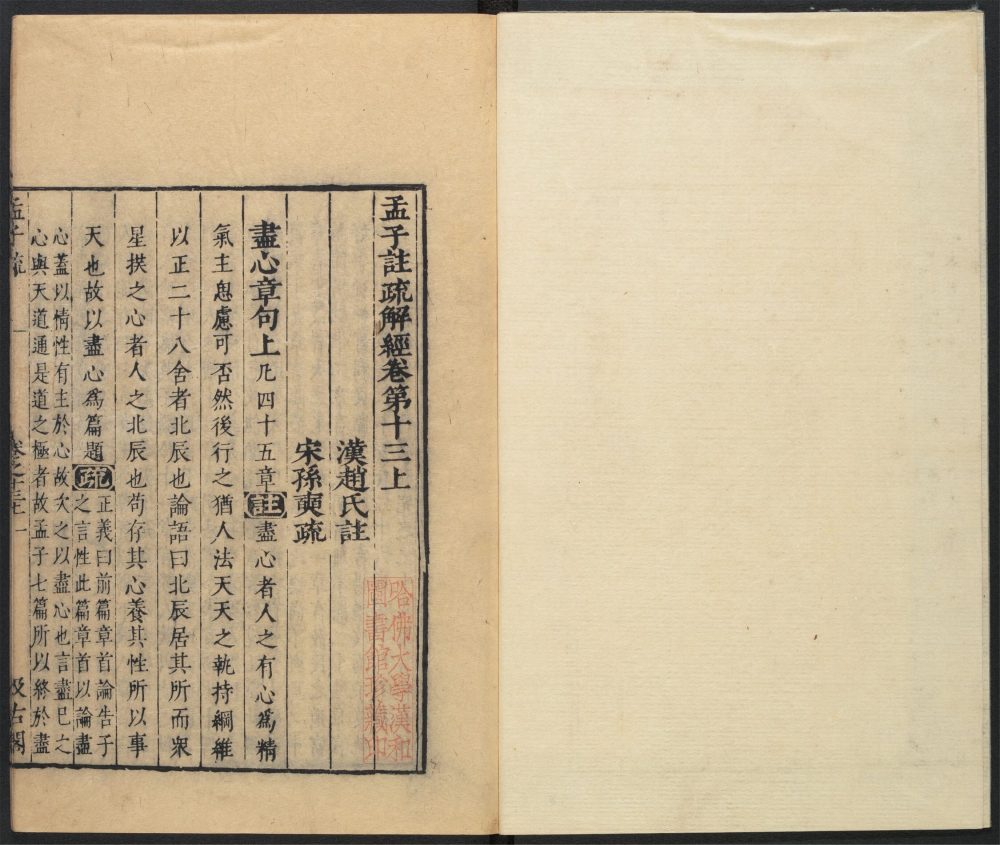 孟子註疏解經卷第十三上
漢趙氏註
宋孫奭疏
盡心章句上凡四十五章註盡心者人之有心爲精
氣主思慮可否然後行之猶人法天天之執持綱維
以正二十八舍者北辰也論語曰北辰居其所而衆
星拱之心者人之北辰也苟存其心養其性所以事
天也故以盡心爲篇題疏
正義曰前篇章首論告子
之言性此篇章首以論盡
心蓋以情性有主於心故次之以盡心也言盡已之
心與天道通是道之極者故孟子七篇所以終於盡
孟子疏
卷之十三上
一
汲古閣
哈佛大學漢和
圖書館珍藏印